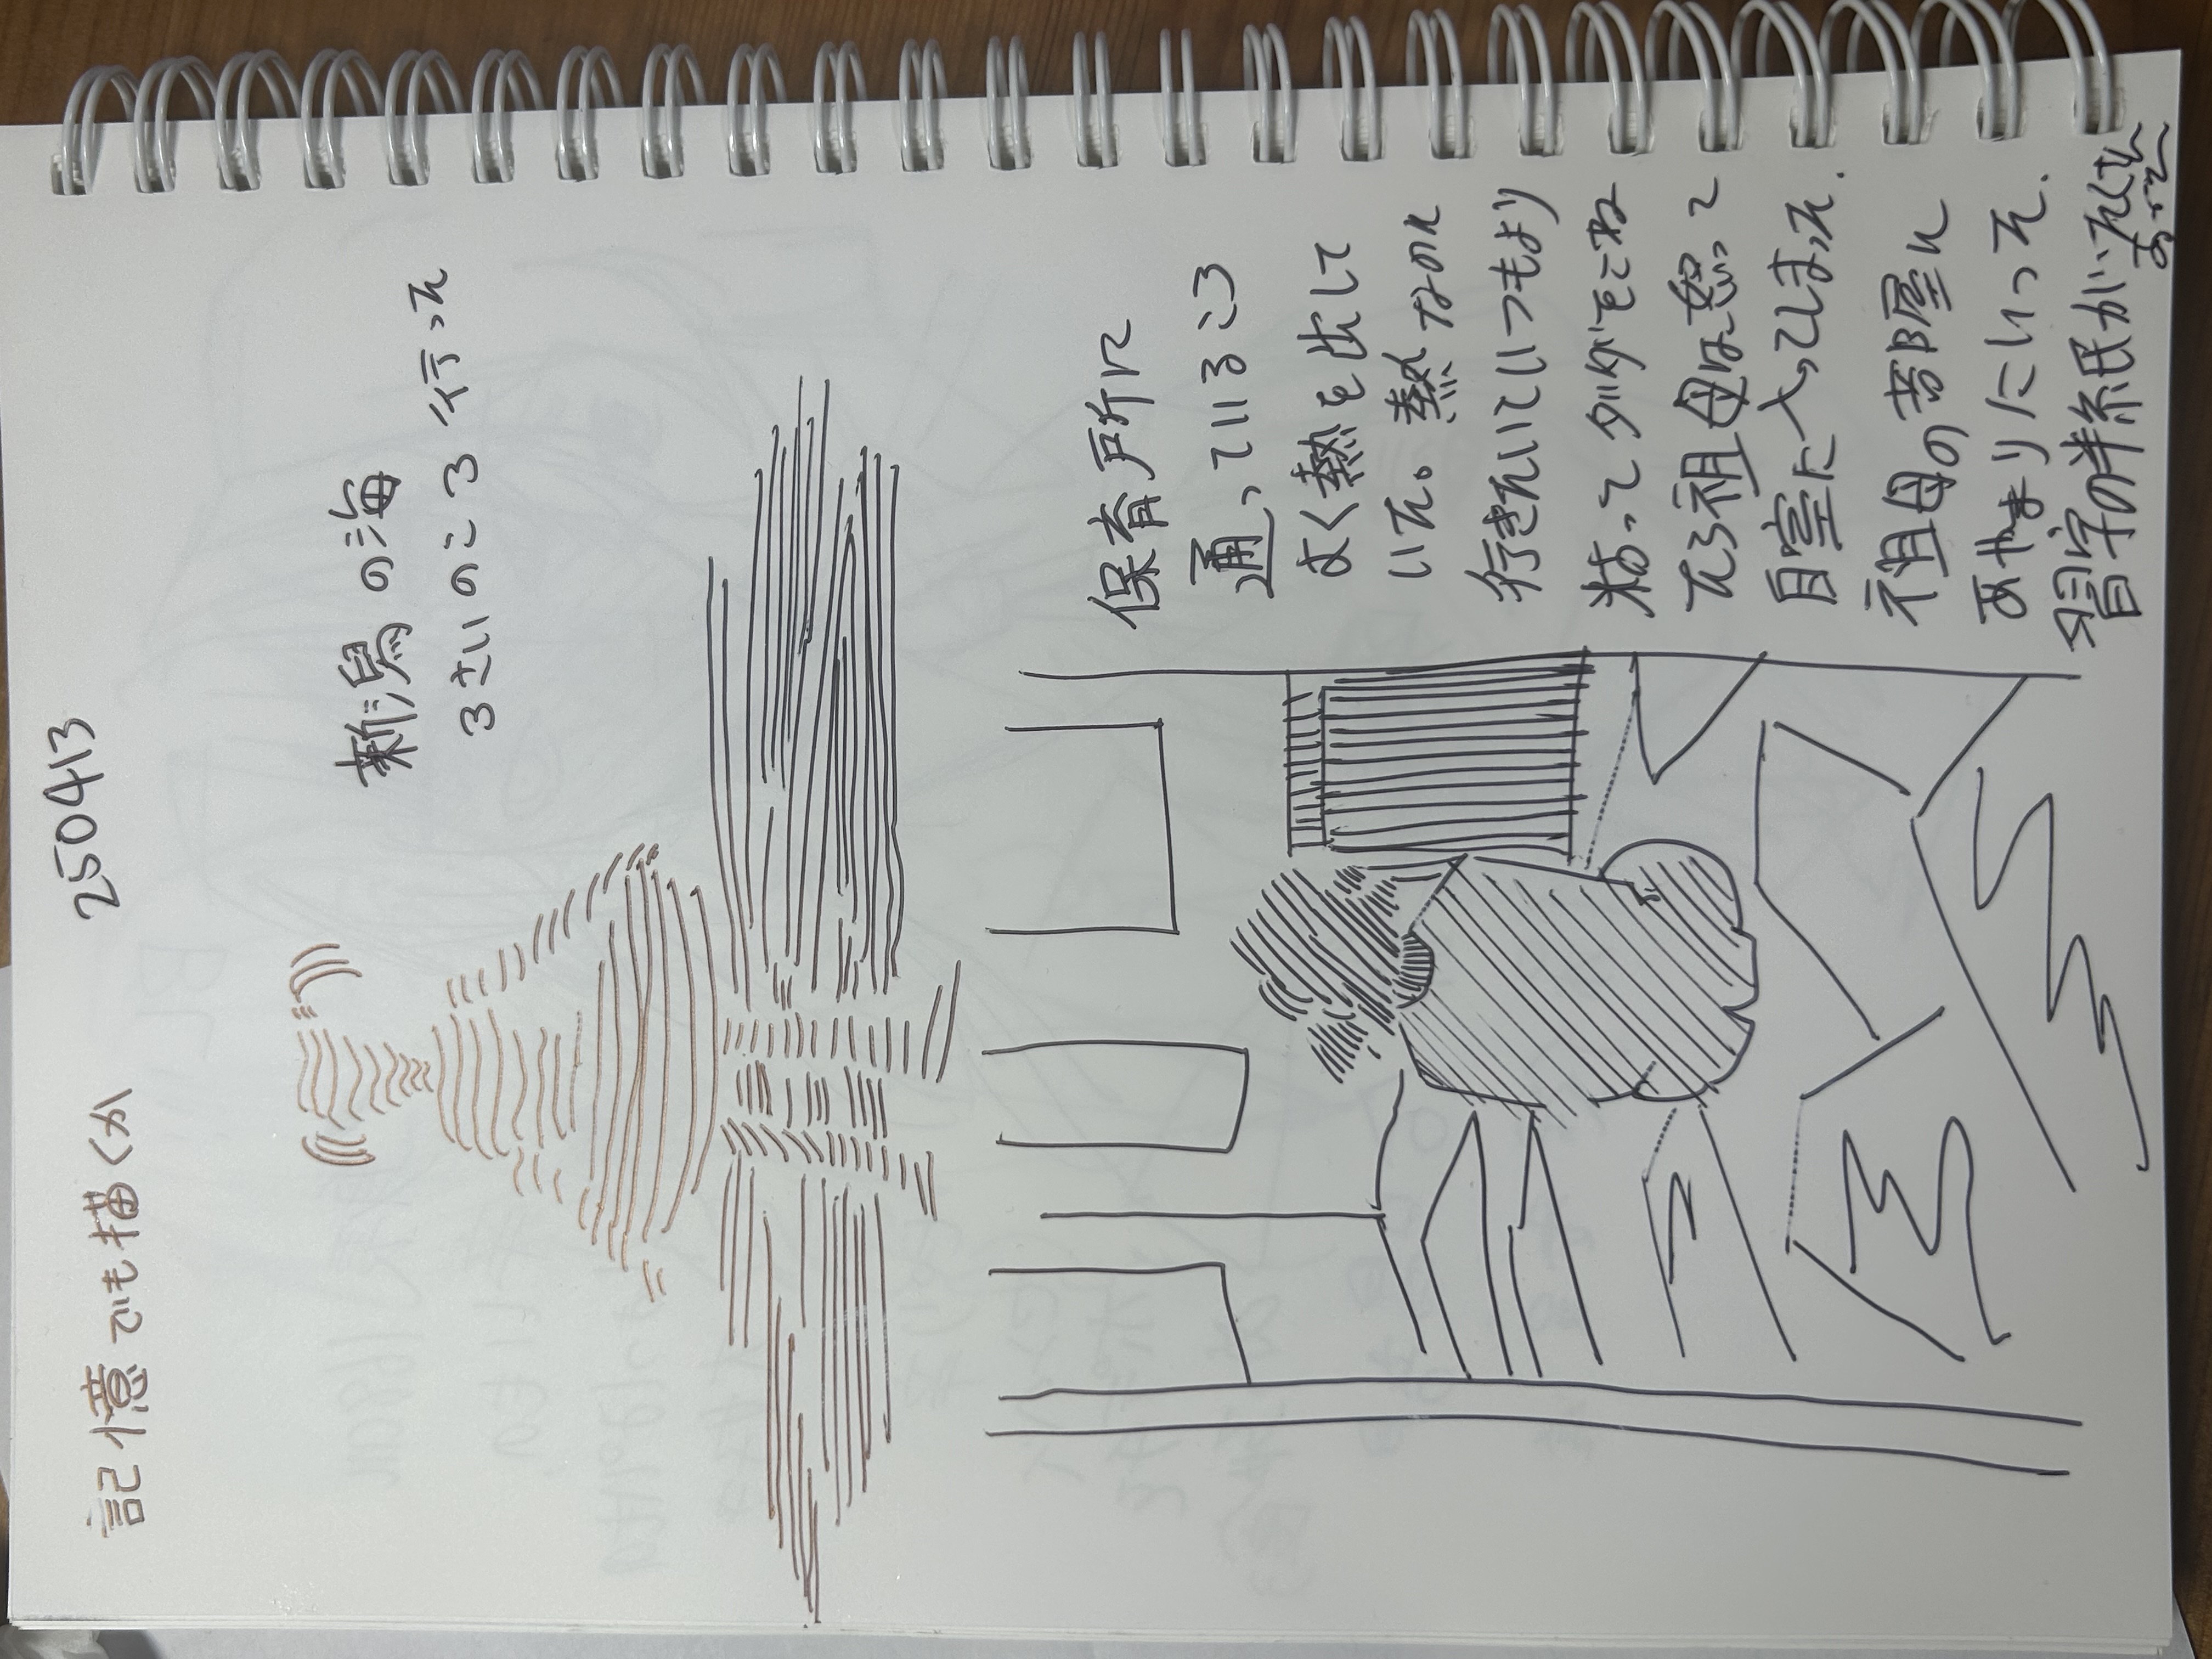 記憶でも描くか 250413
新潟の海
3さいのころ行った
保育所に
通っているころ
よく熱を出して
いた。熱なのに
行きたいといつもより
粘ってダダをこね
たら祖母は怒って
自室に入ってしまった.
祖母の部屋に
あやまりにいった.
習字の半紙がいたくさん
あった